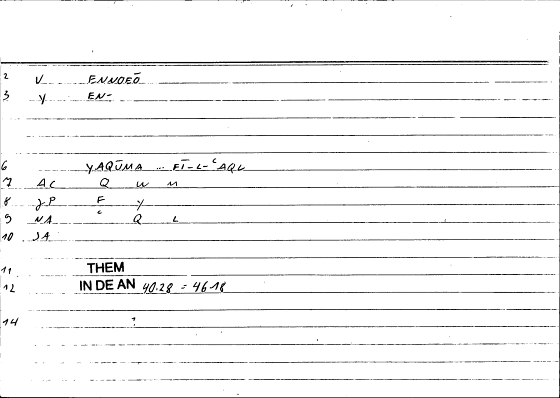 2 V ENNOEŌ
3 Y EN-
6 YAQŪMA ... FĪ-L-ʿAQL
7 AC Q W M
8 GP F Y
9 NA ʿ Q L
10 SA
11 THEM
12 IN DE AN 40.28 = 46.18
14 1